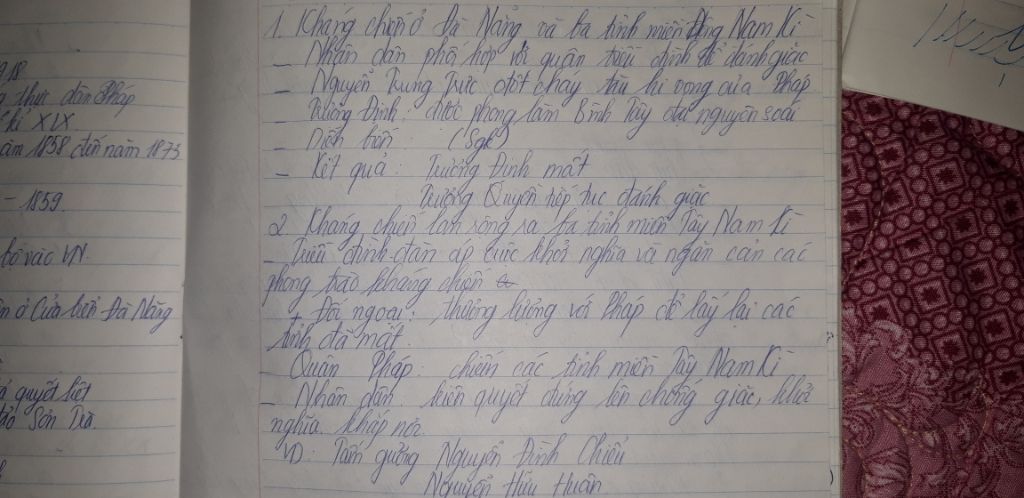 918
thực dân Pháp
kỉ XIX.
năm 1858 đến năm 1873
- 1859.
bờ vào VN.
ở Cửa biển Đà Nẵng
quyết liệt
đảo Sơn Trà.
1. Kháng chiến ở Đà Nẵng và ba tỉnh miền Đông Nam Kì
- Nhân dân phối hợp với quân triều đình để đánh giặc
- Nguyễn Trung Trực đốt cháy tàu hi vọng của Pháp
Trương Định: được phong làm Bình Tây đại nguyên soái
- Diễn biến (Sgk)
- Kết quả: Trương Định mất
Trương Quyền tiếp tục đánh giặc
2. Kháng chiến lan rộng ra ba tỉnh miền Tây Nam Kì
- Triều đình đàn áp cuộc khởi nghĩa và ngăn cản các
phong trào kháng chiến
+ Đối ngoại: thương lượng với Pháp để lấy lại các
tỉnh đã mất.
- Quân Pháp: chiếm các tỉnh miền Tây Nam Kì
- Nhân dân: kiên quyết đứng lên chống giặc, khởi
nghĩa khắp nơi.
VD: Tấm gương Nguyễn Đình Chiểu
Nguyễn Hữu Huân